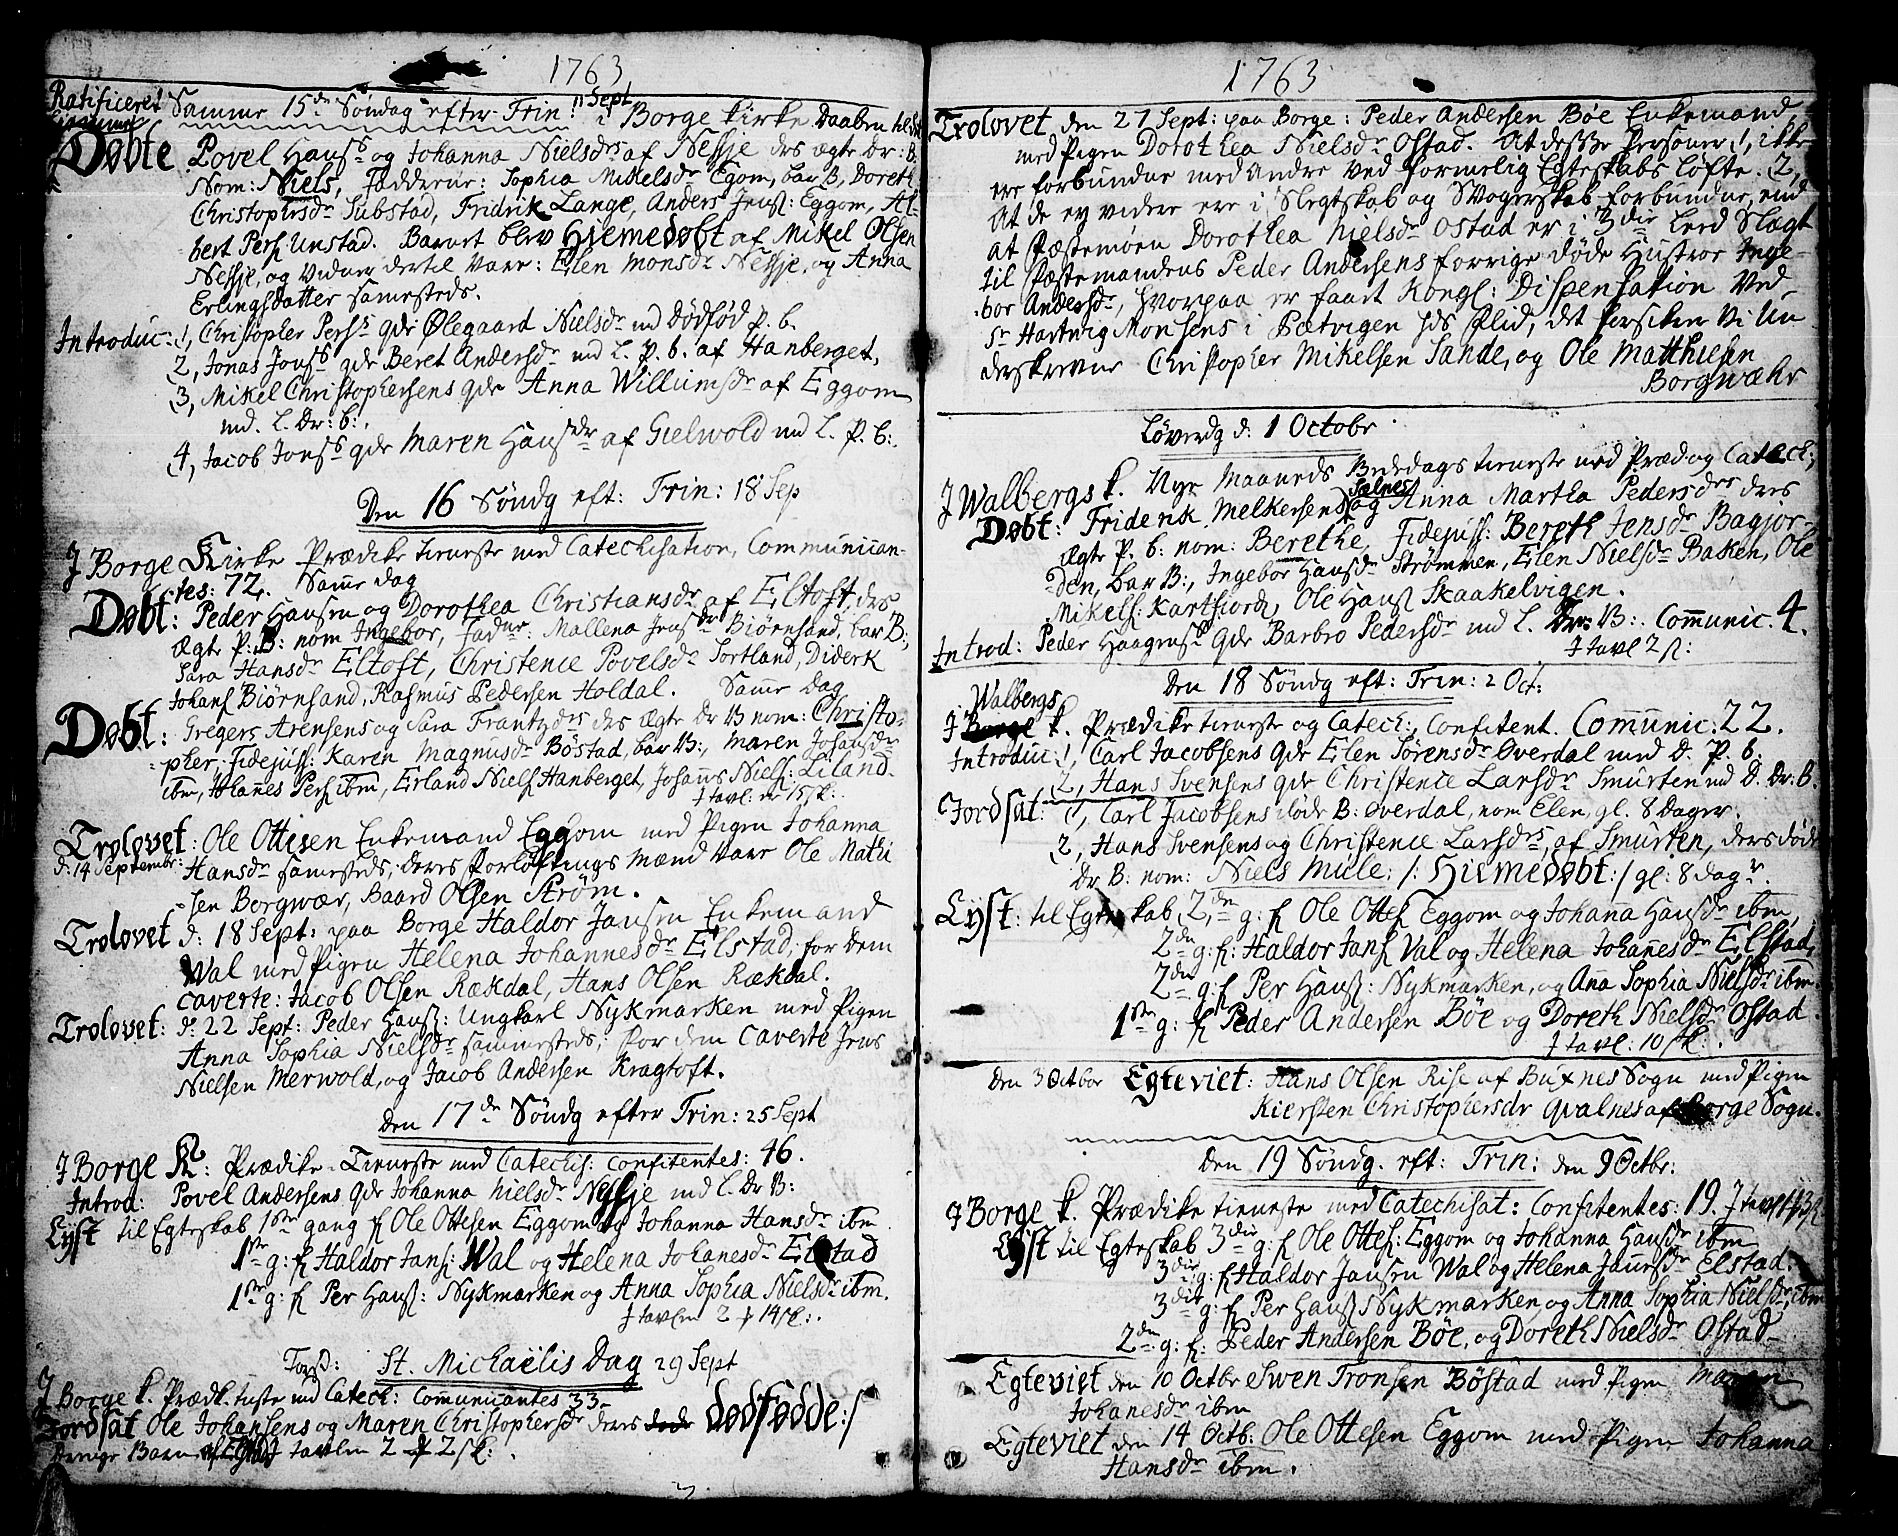 1763
Ratificeret Samme 15de Søndag efter Trin: 11 Sept i Borge Kirke Daaben
Døbte Povel Hansens og Johanna Nielsdrs af Nesje drs ægte Dr: B.
Nom: Niels, Fadderne: Sophia Mikelsdr Egom, bar B, Doreth
Christophersdr Substad, Fridrik Lange, Anders Jens: Eggom, Al-
bert Pers: Unstad. Barnet blev Hiemedøbt af Mikel Olsen
Nesje, og vidner dertil vare: Elen Monsdr Nesje, og Anna
Erlingsdatter sammesteds.
Introduc: 1, Christopher Pers: qde Ølegaard Nielsdr md dødfød P. b.
2, Jonas Jons: qde Beret Andersdr md L. P. b. af Hanberget,
3, Mikel Christophersens qde Anna Willumsdr af Eggom
md. L. Dr: b:.
4, Jacob Jons: qde Maren Hansdr af Gielwold md L. P. b:.
Den 16 Søndg eft: Trin: 18 Sep
J Borge Kirke Prædike tieneste med Catechisation, Communican-
tes: 72. Samme dag
Døbt: Peder Hansen og Dorothea Christiansdr af Eltoft, des
ægte P: B: nom Ingebor, Fadne: Mallena Jensdr Biørnsand, bar B;
Sara Hansdr Eltoft, Christence Povelsdr Sortland, Diderk
Johans: Biørnsand, Rasmus Pedersen Holdal. Samme Dag
Døbt: Gregers Arensens og Sara Frantzdrs des ægte Dr B nom: Christo-
pher. Fidejuss: Karen Magnusdr Bøstad, bar B:, Maren Johansdr
ibm, Johannes Pers ibm, Erland Niels Hanberget, Johans Niels: Liland.
J tavl: 15 sk:.
Trolovet: Ole Ottesen Enkemand Eggom med Pigen Johanna
d: 14 Septembr: Hansdr sammesteds, deres Forlovnings Mænd vare Ole Mathi
-sen Borgwær, Baard Olsen Strøm.
Trolovet d: 18 Sept: paa Borge Haldor Jansen Enkemand
Wal med Pigen Helena Johannesdr Elstad; for dem
caverte: Jacob Olsen Rækdal, Hans Olsen Rækdal.
Trolovet: d: 22 Sept: Peder Hans: Ungkarl Nykmarken med Pigen
Anna Sophia Nielsdr sammesteds; for dem caverte Jens
Nielsen Merwold, og Jacob Andersen Kragtoft.
Den 17de Søndg efter Trin: 25 Sept
J Borge K: Prædike-Tieneste med Catechis: confitentes: 46.
Introd: Povel Andersens qde Johanna Nielsdr Nesje md L. Dr B:
Lyst til Egteskab 1ste gang f Ole Ottesen Eggom og Johanna Hansdr ibm
1ste g: f Haldor Jans: Wal og Helena Johanesdr Elstad
1ste g: f Per Hans: Nykmarken og Anna Sophia Nielsdr ibm.
J tavlen 2 14 sk:.
Torsd: St. Michaëlis Dag 29 Sept
J Borge k. Prædk. tnste md Catech: Communicantes 33.
Jordsat Ole Johansens og Maren Christophersdr deres døde dødfødde:/
Drenge Barn af J tavlen 2 2 sk:.
1763
Trolovet den 27 Sept: paa Borge: Peder Andersen Bøe Enkemand,
med Pigen Dorothea Nielsdr Ostad. At desse Personer 1, ikke
ere forbundne med andre ved formelig Egteskabs løfte. 2,
At de ey videre ere i Slegtskab og Swogerskab forbundne, end
at Fæstemøen Dorothea Nielsdr Ostad er i 3die Leed Slægt
til Fæstemandens Peder Andersens forrige døde Hustroe Inge-
bor Andersdr, hvorpaa er faaet Kongl: Dispensation Ved-
Sr Hartvig Monsens i Pætvigen hds Flid, det forsikrer Vi Un
derskrevne Christopher Mikelsen Sande, og Ole Matthiesen
Borgwæhr
Løverdg d: 1 Octobr
J Walbergs k. Nye Maaneds Bededags tieneste md Præd og Catech;
Døbt: Friderik Melkersens Solnes og Anna Martha Pedersdrs deres
ægte P. b: nom: Berethe, Fidejuss: Bereth Jensdr Bagjor-
den, bar B:, Ingebor Hansdr Strømmen, Elen Nielsdr Bakken, Ole
Mikels: Kartfiord, Ole Hans Skaakelvigen.
Introd: Peder Haagens: qde Barbro Pedersdr md L. Dr: B:. Communic. 4.
J tavl 2 sk:
Den 18 Søndg eft: Trin: 2 Oct:
Walbergs
J Borge k. Prædike tieneste og Catech:, Confitent. Comunic: 22.
Introduc: 1, Carl Jacobsens qde Elen Sørensdr Overdal med D. P. b.
2, Hans Svensens qde Christence Larsdr Smurten md D. Dr: B.
Jordsat: 1, Carl Jacobsens døde B: Overdal, nom Elen, gl. 8 Dager.
2, Hans Svensens og Christence Larsdrs, af Smurten, ders døde
Dr B: nom: Niels Mule: /: Hiemedøbt :/ gl: 8 Dagr.
Lyst: til Egteskab 2den g: f Ole Ottes Eggom og Johana Hansdr ibm,
2den g: f: Haldor Jans Val og Helena Johanesdr Elstad,
2den g: f Per Hans: Nykmarken, og Ana Sophia Nielsdr ibm
1ste g: f Peder Andersen Böe og Doreth Nielsdr Ostad
J tavl: 10 sk:.
Den 3 Octbr Egteviet: Hans Olsen Rise af Buxnes Sogn med Pigen
Kiersten Christophersdr Qvalnes af Borge Sogn.
Den 19 Søndg. eft: Trin: den 9 Octbr:
J Borge k. Prædike tieneste med Catechisat: Confitentes: 19. J tavl 13 sk:
Lyst til Egteskab 3die g: f Ole Ottes: Eggom og Johanna Hansdr ibm
3die g: f Haldor Jansen Wal og Helena Jannesdr Elstad.
3die g: f Per Hans Nykmarken, og Anna Sophia Nielsdr, ibm
2den g: f: Peder Andersen Böe, og Doreth Nielsdr Ostad
Egteviet den 10 Octbr Swen Tronsen Böstad med Pigen Maren
Johanesdr ibm
Egteviet den 14 Octb: Ole Ottesen Eggom med Pigen Johanna
Hansdr ibm.